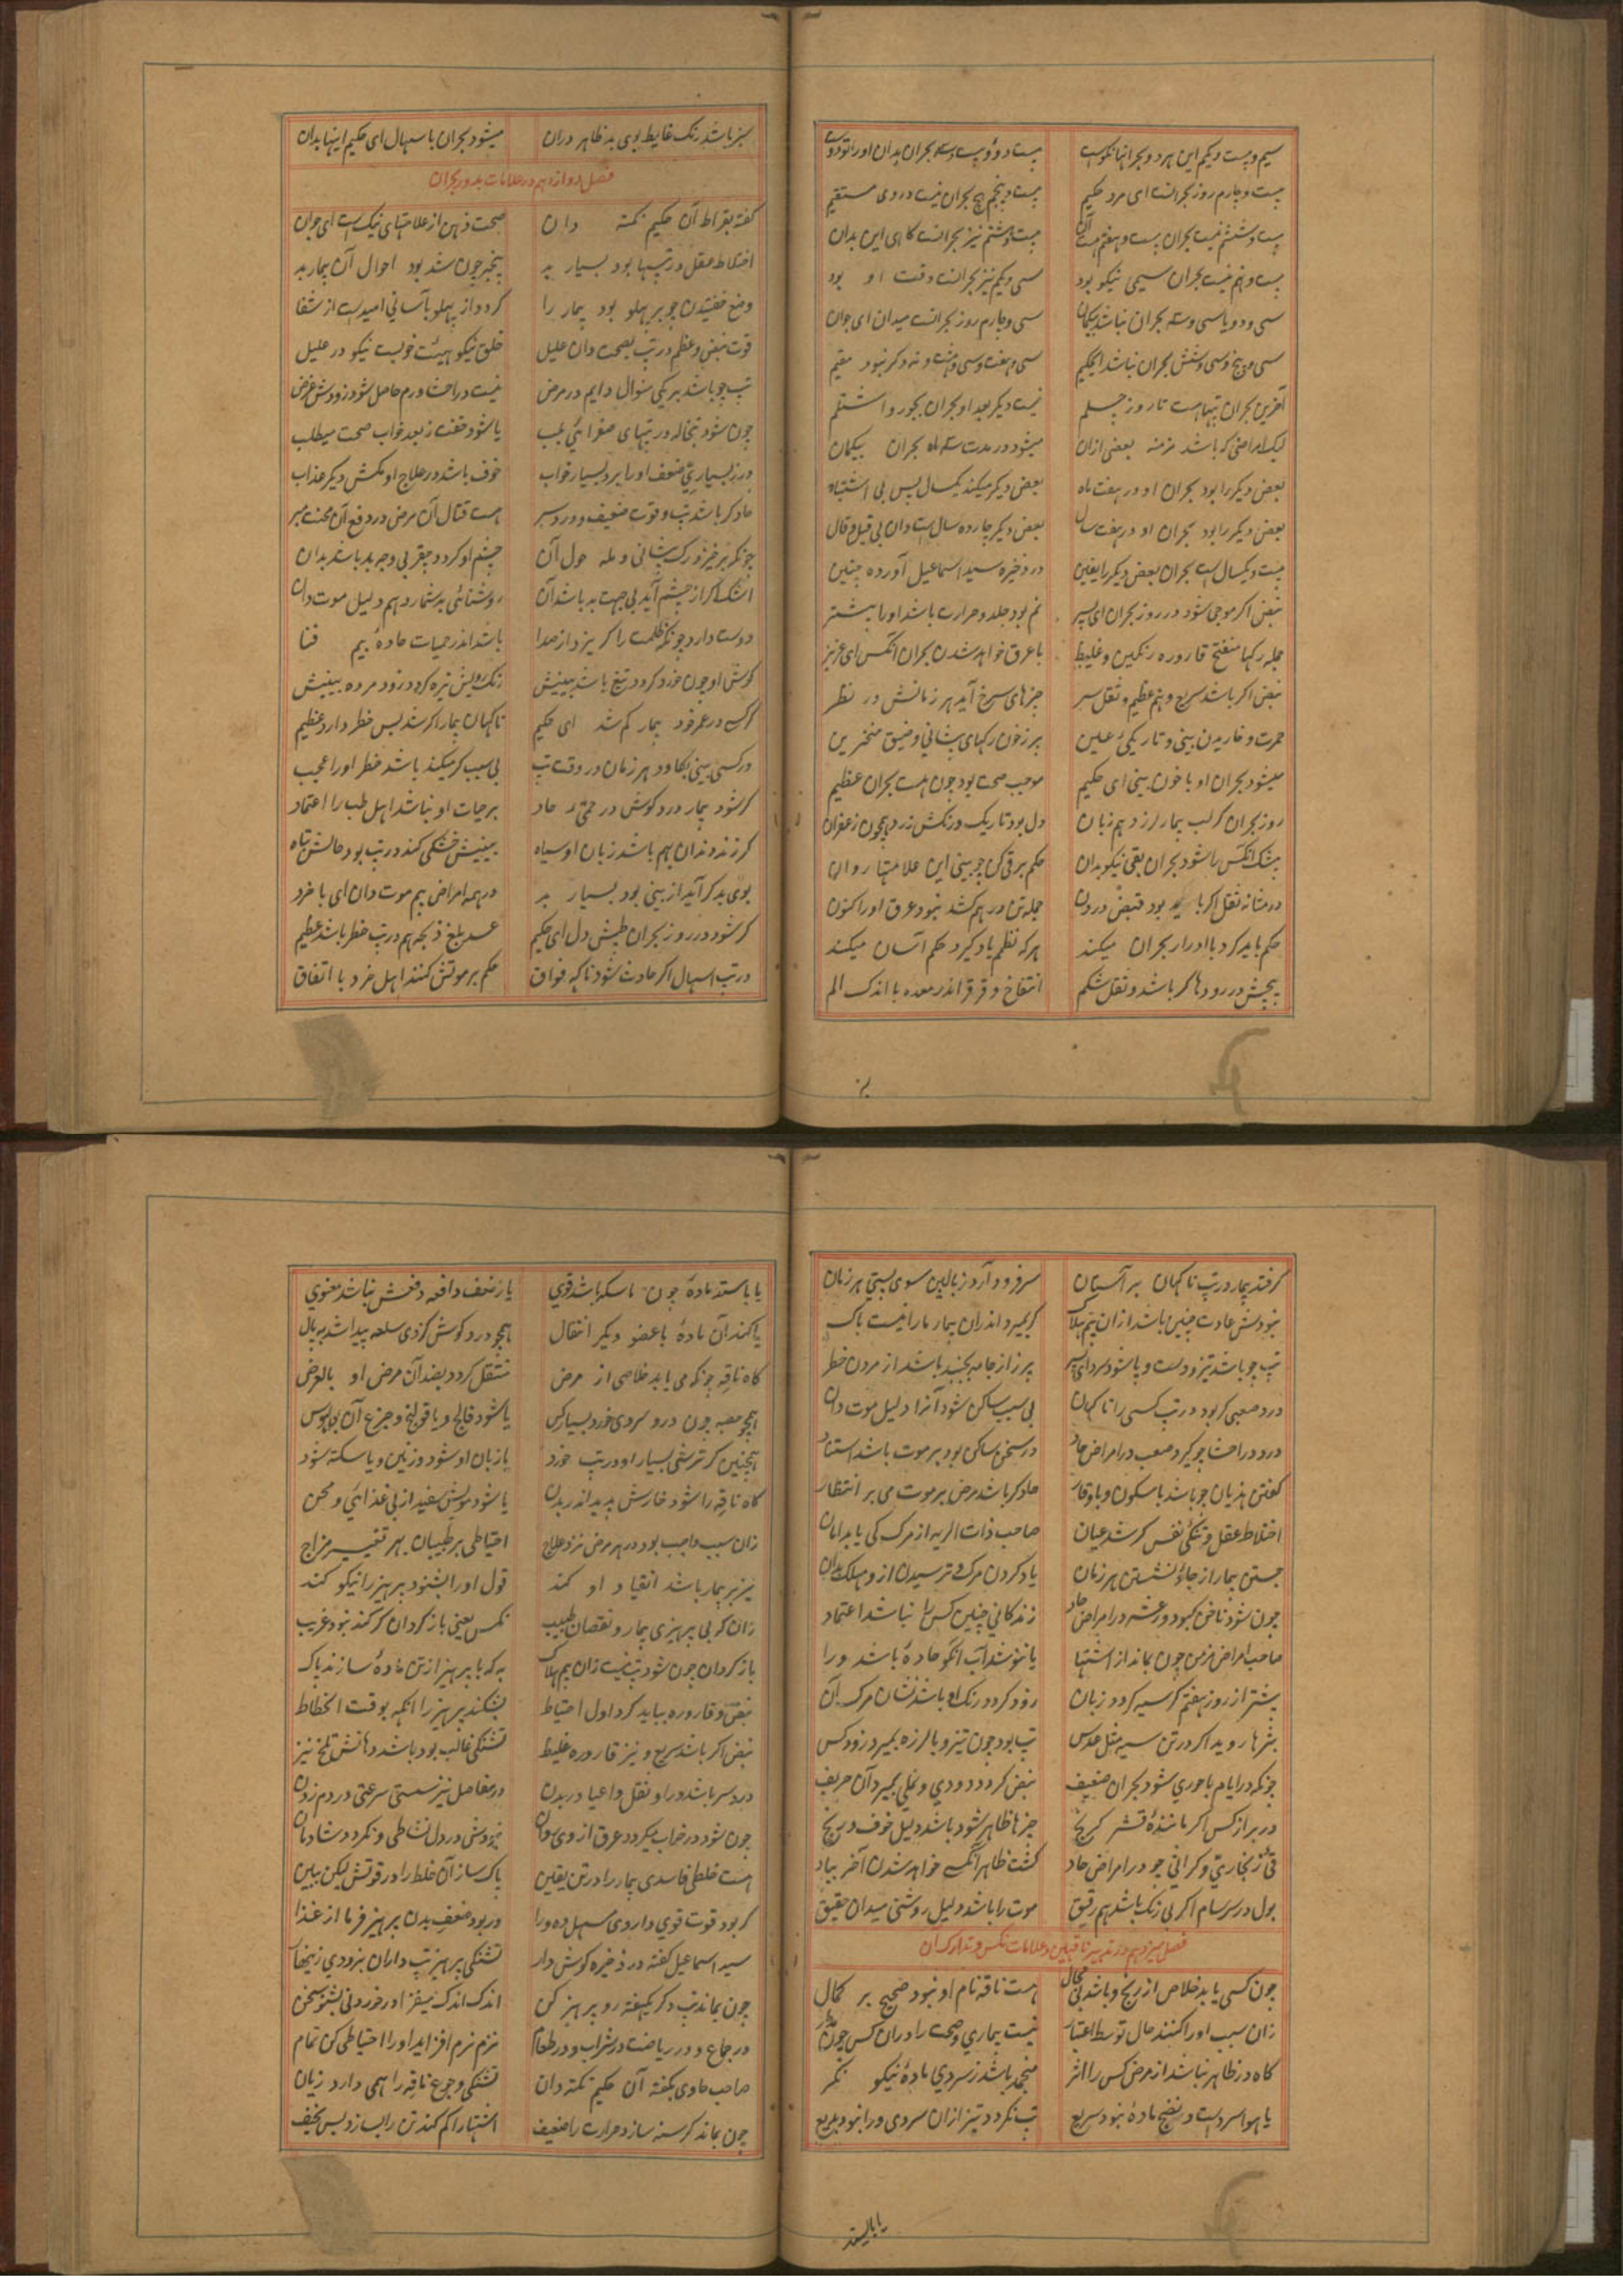 سیم و بیست و یکم این هر دو بحرانها نکوست بیست و دو و بیست و سه بحران بدان او را نه دوست
بیست و چارم روز بحرانست ای مرد حکیم بیست و پنجم هیچ بحران نیست در وی مستقیم
بیست و ششم نیست بحران بیست و هفتم هست آن بیست و هشتم نیز بحرانست کاهی این بدان
بیست و نهم نیست بحران سیمی نیکو بود سی و یکم نیز بحرانست وقت او بود
سی و دو و یا سی و سه بحران نباشد بیکمان سی و چارم روز بحرانست میدان ای جوان
سی و پنج و سی و شش بحران نباشد ای حکیم سی و هفت و سی و هشت و نه دکر نبود مقیم
آخرین بحران تبهاست تا روز چهلم نیست دیکر بعد او بحران بجوز و اشتلم
لیک امراضی که باشد مزمنه بعضی ازان میشود در مدت سه ماه بحران بیکمان
بعض دیکر را بود بحران او در هفت ماه بعض دیکر میکند یکسال بس بی اشتباه
بعض دیکر را بود بحران او در هفت سال بعض دیکر چارده سال است دان بی قیل و قال
بیست و یکسال است بحران بعض دیکر را یقین در ذخیره سید اسماعیل آورده چنین
نبض اکر موجی شود در روز بحران ای پسر نم بود جلد و حرارت باشد او را بیشتر
جمله رکها منفتح قاروره رنکین و غلیظ با عرق خواهد شدن بحران آنکس ای عزیز
نبض اکر باشد سریع و هم عظیم و ثقل سر چیزهای سرخ آید هر زمانش در نظر
حمرت و خاریدن بینی و تاریکی عین پر ز خون رکهای پیشانی و ضیق منخرین
میشود بحران او با خون بینی ای حکیم موجب صحت بود چون هست بحران عظیم
روز بحران کر لب بیمار لرزد هم زبان دل بود تاریک و رنکش زرد همچون زعفران
بیشک آنکس را شود بحران بقی نیکو بدان حکم بر قی کن چو بینی این علامتها روان
در مثانه ثقل اکر باشد بود قبض درون جمله تن در هم کشد نبود عرق او را کنون
حکم باید کرد با ادرار بحران میکند هر که نظم یاد کیرد حکم آسان میکند
پیچش در رودها کر باشد و ثقل شکم انتفاخ و قرقر اندر معده با اندک الم
سبز باشد رنک غایط بوی بد ظاهر دران میشود بحران باسهال ای حکیم اینها بدان
فصل دوازدهم در علامات بد و بحران
کفته بقراط آن حکیم نکته دان صحت ذهن از علامتهای نیک است ای جوان
اختلاط عقل در تبها بود بسیار بد بیخبر چون شد بود احوال آن بیمار بد
وضع خفتیدن چو بر پهلو بود بیمار را کردد از پهلو بآسانی امید است از شفا
قوت نبض و عظم در تب بصحت دان علیل خلق نیکو هیئت خوبست نیکو در علیل
تب چو باشد بر یکی منوال دایم در مرض نیست در راحت ورم حاصل شود زودش غرض
چون شود تبخاله در تبهای صفرائی بلب یا شود خفت ز بعد خواب صحت میطلب
در ز بسیاری ضعف او را برد بسیار خواب خوف باشد در علاج او مکش دیکر عذاب
حاد کر باشد تب و قوت ضعیف و درد سر هست قتال آن مرض در دفع آن محنت مبر
چشم او کردد چقر بی وجه بد باشد بدان
اشک اکر از چشم آید بی جهت بد باشد آن روشنائی بد شمارد هم دلیل موت دان
دوست دارد چونکه ظلمت را کریزد از صدا باشد اندر حمیات حاده بیم فنا
کوش او چون خورد کردد تیغ باشد بینیش رنک رویش تیره کردد زود مرده بینیش
کرسنه در عمر خود بیمار کم شد ای حکیم ناکهان بیمار اکر شد بس خطر دارد عظیم
هر کسی بینی بکاود هر زمان در وقت تب بی سبب کر میکند باشد خطر او را عجب
کر شود بیمار درد کوش در حمی حاد بر حیات او نباشد اهل طب را اعتماد
کر زند دندان بهم باشد زبان او سیاه بینیش خشکی کند در تب بود حالش تباه
بوی بد کر آید از بینی بود بسیار بد در همه امراض بیم موت دان ای با خرد
کر شود در روز بحران طپش دل ای حکیم عسر بلع و ذبحه هم در تب خطر باشد عظیم
در تب اسهال اکر حادث شود ناکه فواق حکم بر موتش کنند اهل خرد با اتفاق
کر فتد بیمار در تب ناکهان بر آستان سر فرود آرد ز بالین سوی پستی هر زمان
نبودش عادت چنین باشد ازان بیم هلاک کر بمیرد اندران بیمار ما را نیست باک
تب چو باشد تیز و دست و پا شود سرد ای پسر پرز از جامه بچیند باشد از مردن خطر
درد صعبی کر بود در تب کسی را ناکهان بی سبب ساکن شود آنرا دلیل موت دان
درد در احشا چو کیرد صعب در امراض حاد
کفتن هذیان چو باشد با سکون و با وقار حاد کر باشد مرض بر موت می بر انتظار
اختلاط عقل و تنکی نفس کر شد عیان صاحب ذات الریه از مرک کی یابد امان
جستن بیمار از جا و نشستن هر زمان یاد کردن مرک و ترسیدن ازو مهلک بدان
چون شود ناخن کبود و رعشه در امراض حاد زندکانی چنین کس را نباشد اعتماد
صاحب امراض مزمن چون بماند از اشتها
پیشتر از روز هفتم کر سیه کردد زبان زود کردد رنک او باشد نشان مرک آن
بثرها روید اکر در تن سیه مثل عدس تب بود چون تیز و با لرزه بمیرد زود کس
چونکه در ایام باحوری شود بحران ضعیف نبض کردد دودی و نملی بمیرد آن حریف
در براز کس اکر مانندۀ قشر کرنج چیزها ظاهر شود باشد دلیل خوف و رنج
قئ زنجاری و کراثی چو در امراض حاد کشت ظاهر آنکسی خواهد شدن آخر بباد
بول در سرسام اکر بی رنک باشد هم رقیق موت را باشد دلیل روشنی میدان حقیق
فصل سیزدهم در تدبیر ناقهین و علامات نکس و تدارک آن
چون کسی یابد خلاص از رنج و باشد بی مجال هست ناقه نام او نبود صحیح بر کمال
زان سبب او را کنند حال توسط اعتبار نیست بیماری و صحت را دران کس چون مدار
کاه در ظاهر نباشد از مرض کس را اثر منجمد باشد ز سردی مادۀ نیکو نکر
یا هوا سرد است و نضج ماده نبود سریع تب نکردد تیز ازان سردی ورا نبود بدیع
یا باستد ماده چون ماسکه باشد قوی یا ز ضعف دافعه دفعش نباشد معنوی
یا کند آن ماده با عضو دیکر انتقال همچو درد کوش کز وی سلعه پیدا شد
کاه ناقه چونکه می یابد خلاصی از مرض منتقل کردد بضد آن مرض او بالعرض
همچو محصبه چون درو سردی خورد بسیار کس یا شود فالج و یا قولنج و جزع آن
همچنین کر ترشی بسیار او در تب خورد یا زبان او شود و یا سکته شود
کاه ناقه را شود خارش پدید اندر بدن یا شود مویش سفید از بی غذائی و محن
زان سبب واجب بود در هر مرض نزد علاج احتیاطی بر طبیبان بهر تغییر مزاج
نیز بر بیمار باشد انقیاد او کند قول او را بشنود پرهیز را نیکو کند
زان که بی پرهیزی بیمار و نقصان طبیب نکس یعنی باز کردان کر کند نبود غریب
باز کردان چون شود تب نیست زان بیم هلاک به که با پرهیز از تن ماده سازند پاک
نبض و قاروره بباید کرد اول احتیاط بشکند پرهیز را آنکه بوقت انحطاط
نبض اکر باشد سریع و نیز قاروره غلیظ تشنکی غالب بود باشد دهانش تلخ نیز
درد سر باشد ورا و ثقل و اعیا در بدن در مفاصل نیز سستی سرعتی در دم زدن
چون شود در خواب میکردد عرق از وی روان نبودش در دل نشاطی و نکردد شادمان
هست خلطی فاسدی بیمار را در تن یقین پاک ساز آن خلط را در قوتش لیکن ببین
کر بود قوت قوی داروی مسهل ده ورا ور بود ضعف بدن پرهیز فرما از غذا
سید اسماعیل کفته در ذخیره کوش دار تشنکی پرهیز تب داران بزودی زینهار
چون بماند تب دکر یکهفته رو پرهیز کن اندک اندک میفزا در خوردنی بشنو سخن
در جماع و در ریاضت در شراب و در طعام نرم نرم افزاید او را احتیاطی کن تمام
صاحب حاوی بکفته آن حکیم نکته دان تشنکی و جوع ناقه را همی دارد زیان
چون بماند کرسنه سازد حرارت را ضعیف اشتها را کم کند تن را بسازد بس نحیف
یا باستد